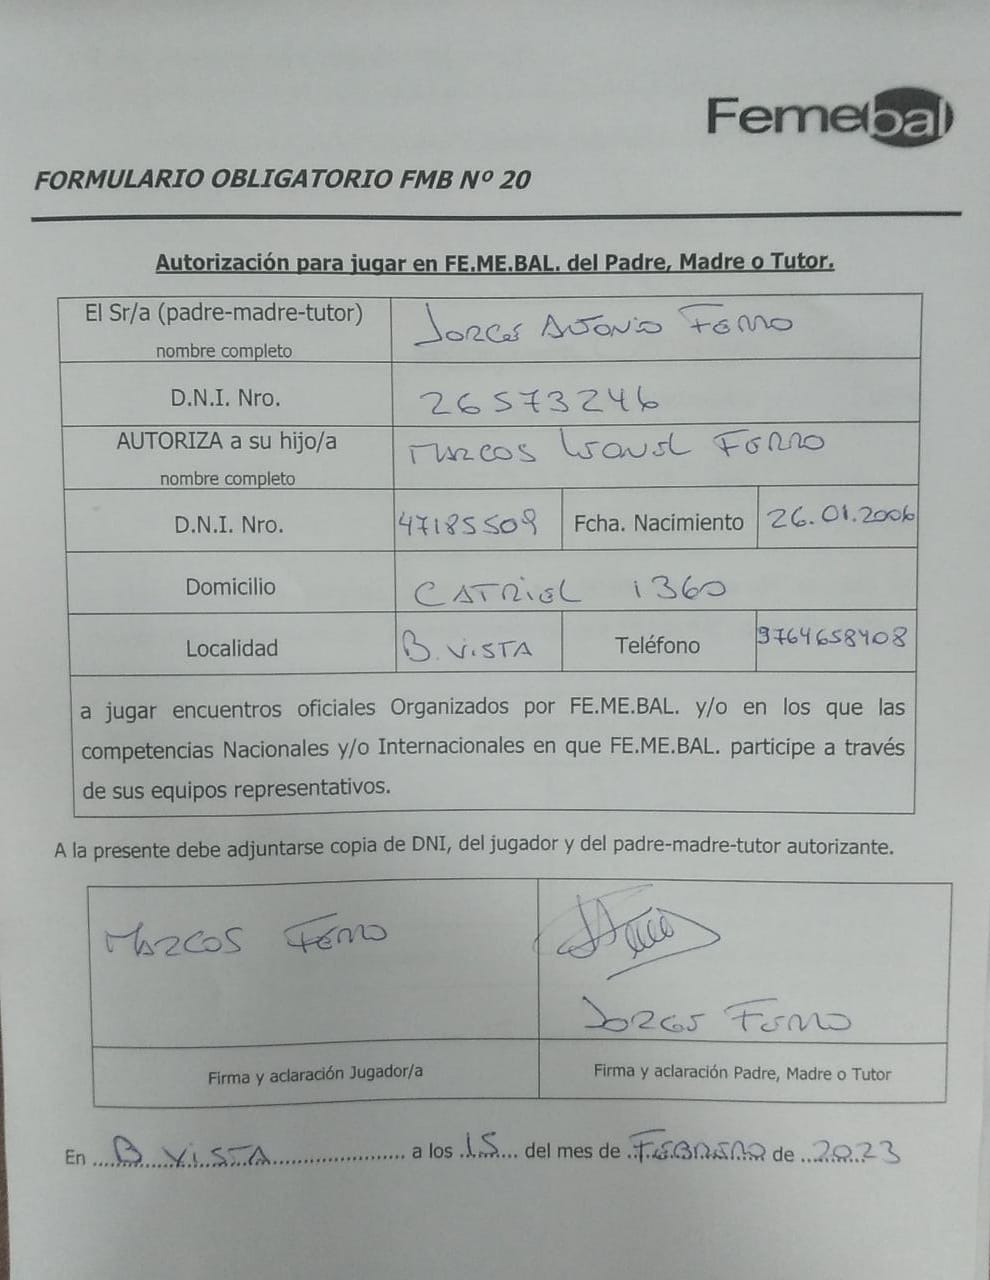 Femebal
FORMULARIO OBLIGATORIO FMB Nº 20
Autorización para jugar en FE.ME.BAL. del Padre, Madre o Tutor.
El Sr/a (padre-madre-tutor)
nombre completo
Jorge Antonio Ferro
D.N.I. Nro.
26573246
AUTORIZA a su hijo/a
nombre completo
Marcos Ferro
D.N.I. Nro.
47185509
Fcha. Nacimiento
26.01.2006
Domicilio
CATRIEL 1360
Localidad
B. VISTA
Teléfono
3764658408
a jugar encuentros oficiales Organizados por FE.ME.BAL. y/o en los que las
competencias Nacionales y/o Internacionales en que FE.ME.BAL. participe a través
de sus equipos representativos.
A la presente debe adjuntarse copia de DNI, del jugador y del padre-madre-tutor autorizante.
Marcos Ferro
Jorge Ferro
Firma y aclaración Jugador/a
Firma y aclaración Padre, Madre o Tutor
En B VISTA a los 15 del mes de FEBRERO de 2023